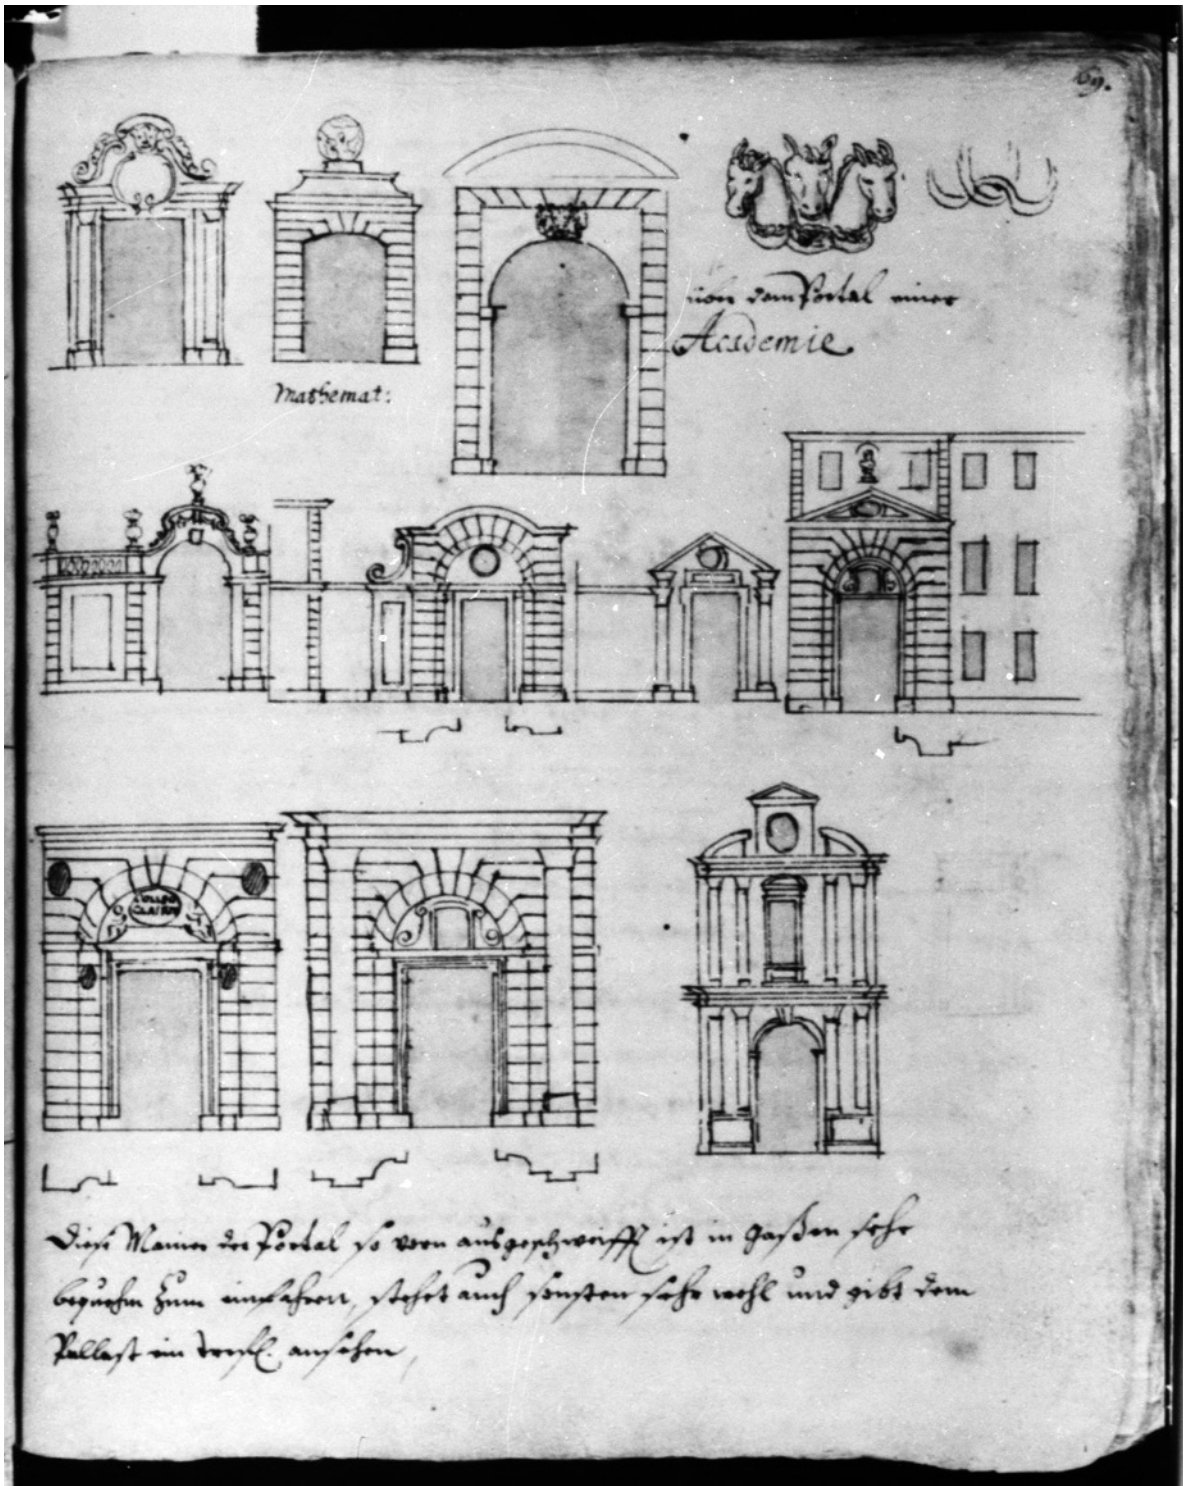 69.
über dem Portal einer
Academie
Mathemat:
Diese Manier der Portal so vorn ausgeschweifft ist in gaßen sehr
bequehm zum einfahren, stehet auch sonsten sehr wohl und gibt dem
Pallast ein trefl. ansehen,